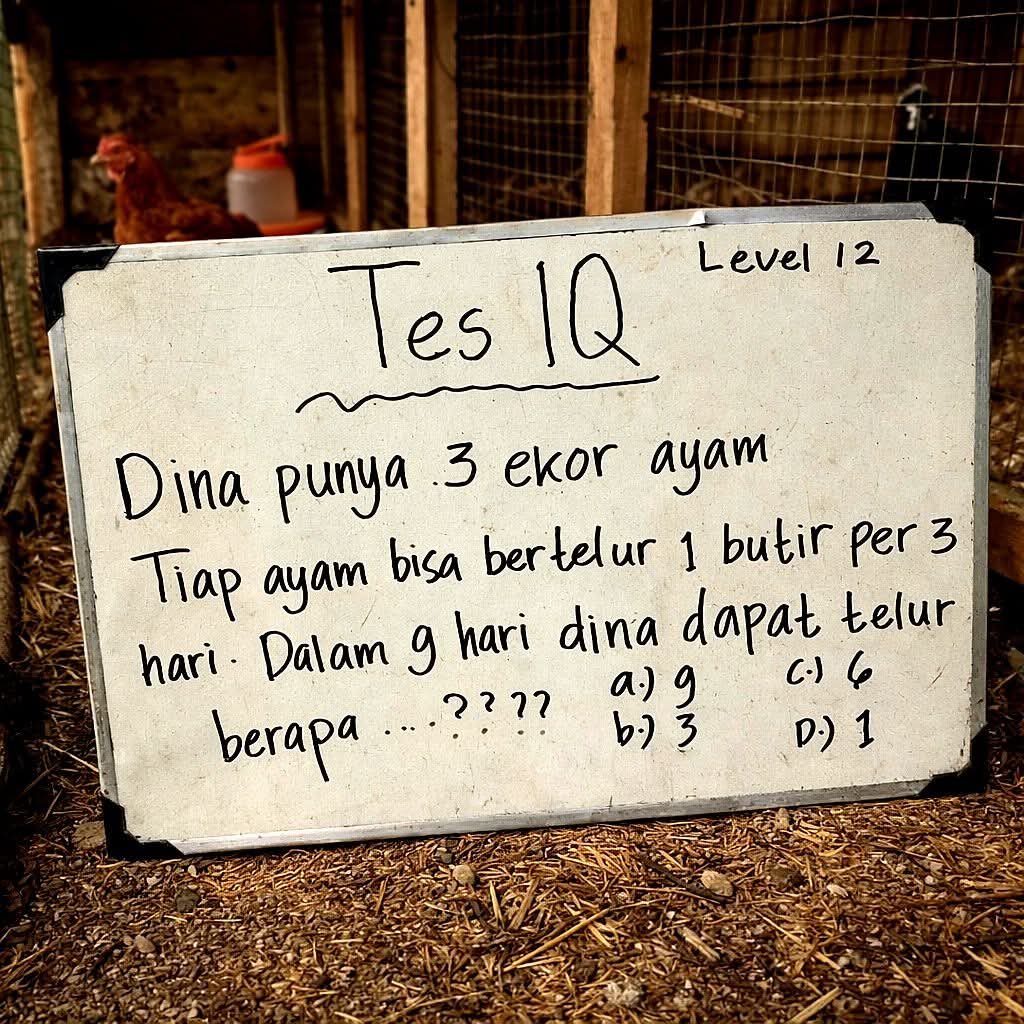 Tes IQ
Level 12
Dina punya 3 ekor ayam
Tiap ayam bisa bertelur 1 butir per 3
hari. Dalam 9 hari dina dapat telur
berapa ....????
a.) 9
c.) 6
b.) 3
D.) 1